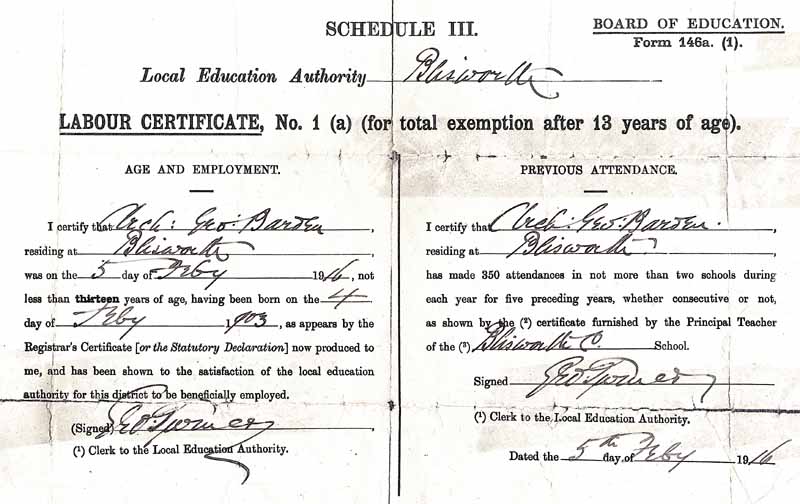 SCHEDULE III.
BOARD OF EDUCATION.
Form 146a. (1).
Local Education Authority Blisworth
LABOUR CERTIFICATE, No. 1 (a) (for total exemption after 13 years of age).
AGE AND EMPLOYMENT.
I certify that Arch: Geo: Barden,
residing at Blisworth
was on the 5 day of Feby 1916, not
less than thirteen years of age, having been born on the 4
day of Feby 1903, as appears by the
Registrar's Certificate [or the Statutory Declaration] now produced to
me, and has been shown to the satisfaction of the local education
authority for this district to be beneficially employed.
(Signed) Geo
(¹) Clerk to the Local Education Authority.
PREVIOUS ATTENDANCE.
I certify that Arch: Geo: Barden,
residing at Blisworth
has made 350 attendances in not more than two schools during
each year for five preceding years, whether consecutive or not,
as shown by the (²) certificate furnished by the Principal Teacher
of the (³) Blisworth C. School.
Signed Geo
(¹) Clerk to the Local Education Authority.
Dated the 5th day of Feby 1916